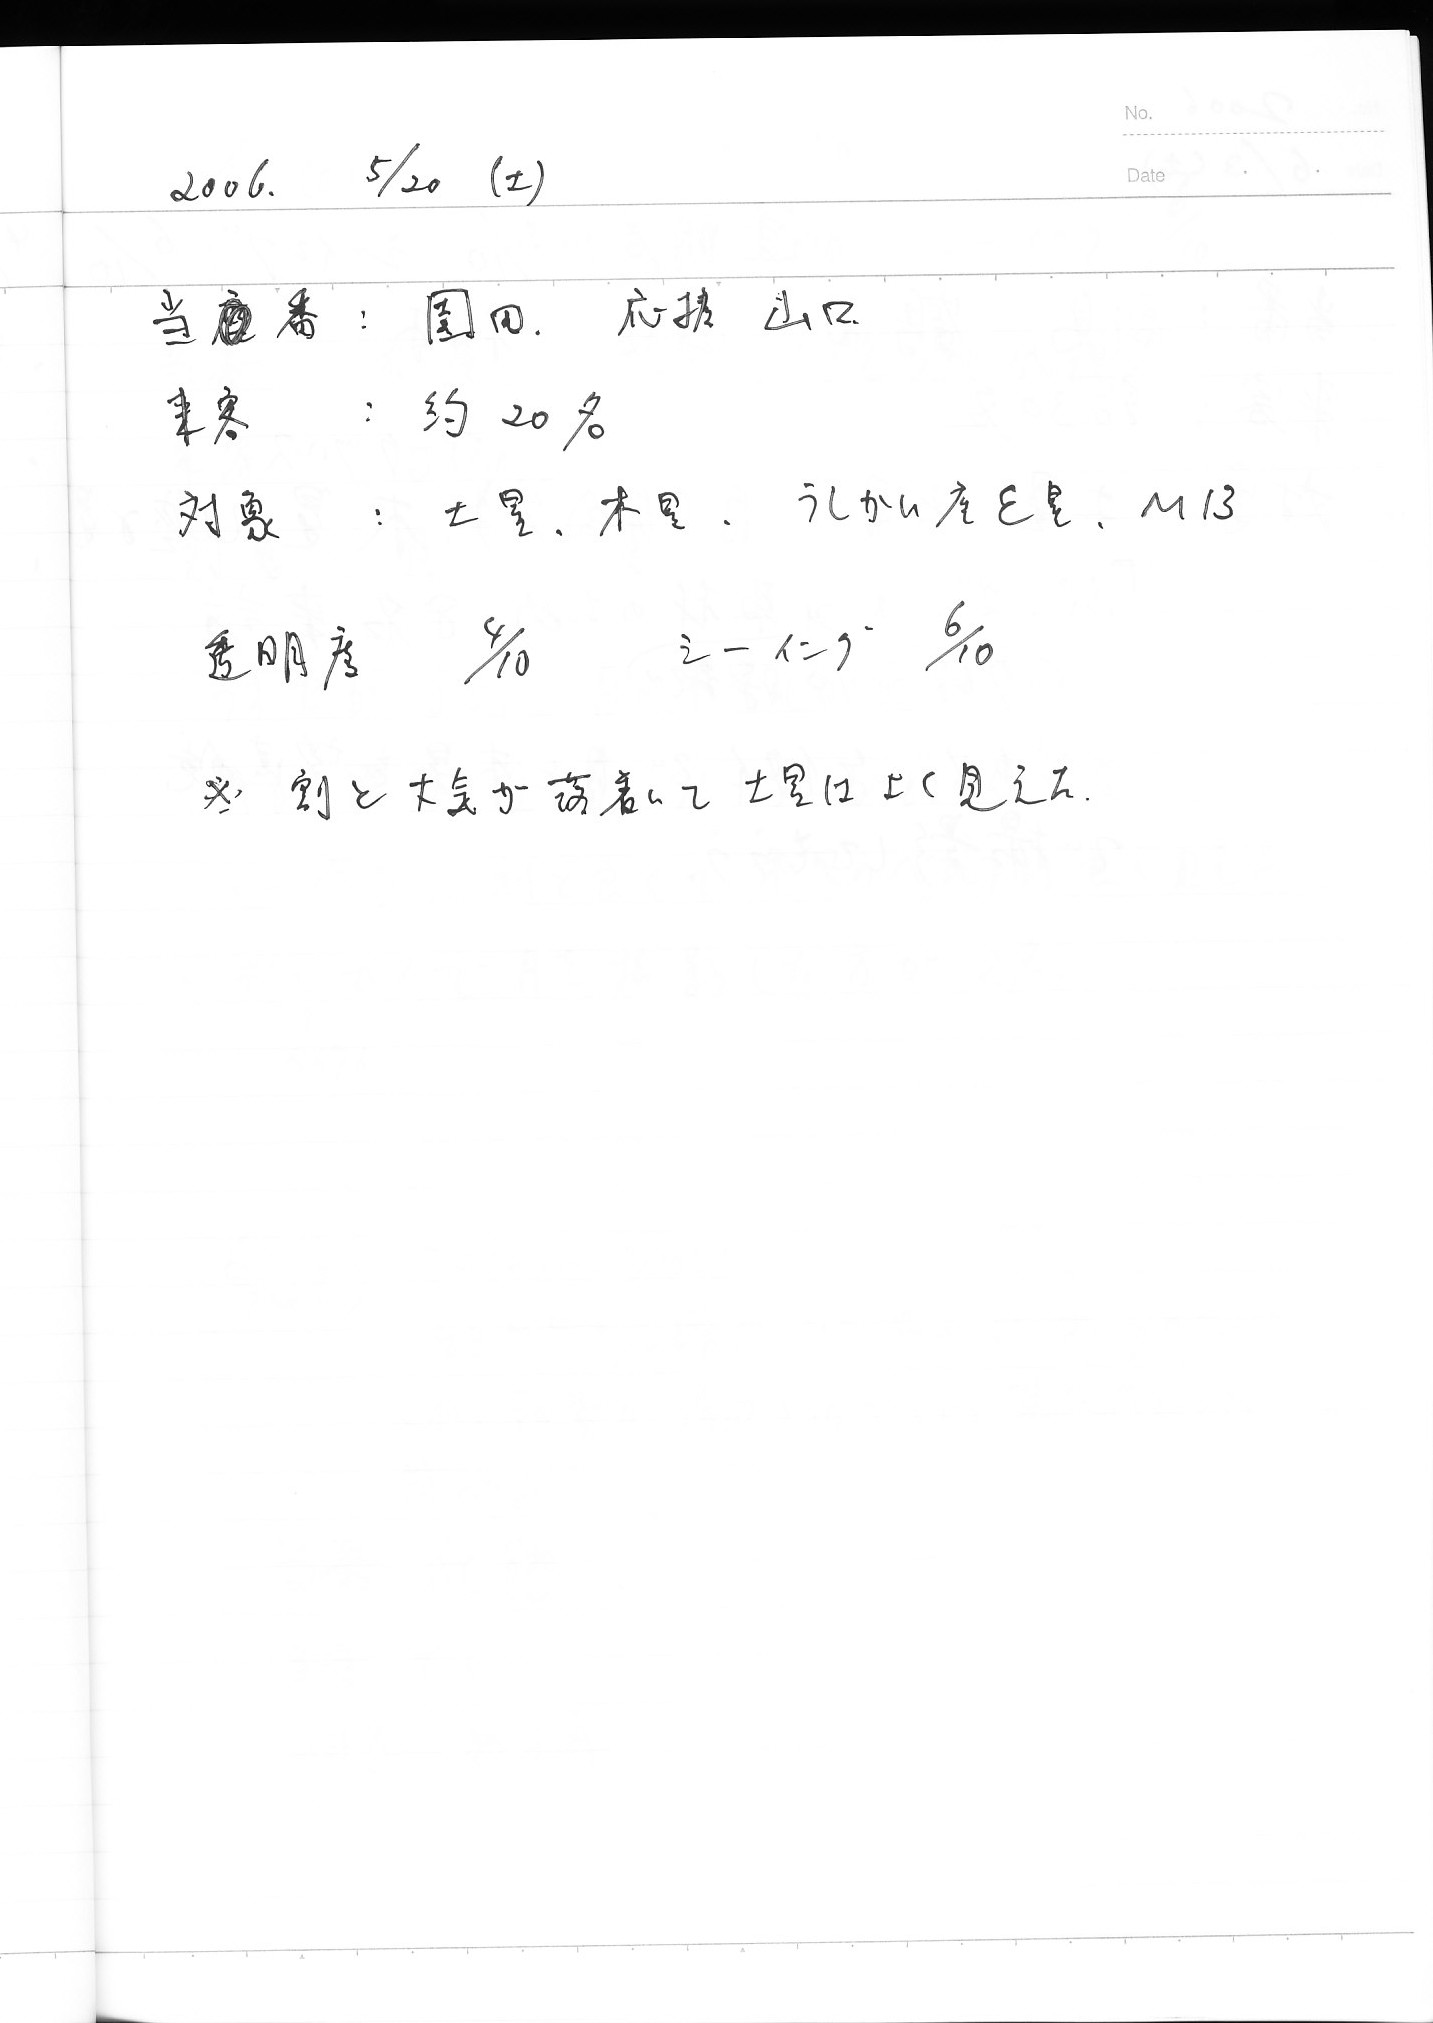 No.
Date
2006. 5/20 (土)
当番 : 園田. 応援 山口
来客 : 約20名
対象 : 土星、木星、うしかい座ε星、M13
透明度 4/10 シーイング 6/10
※ 割と大気が落着いて土星はよく見えた.